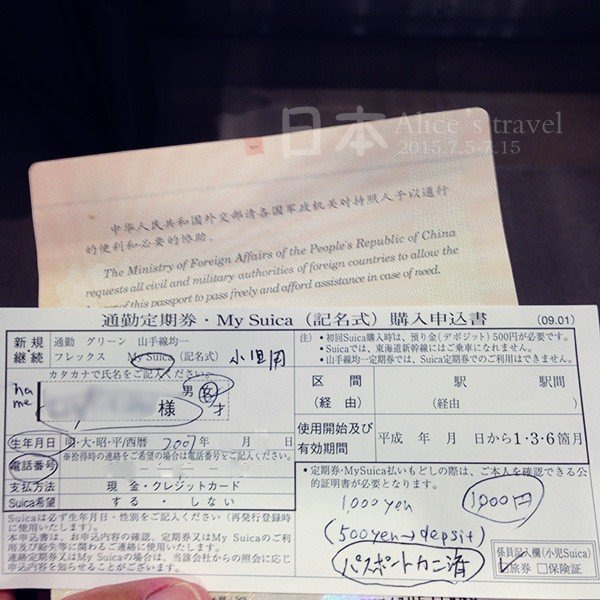 日本 Alice`s travel
2015.7.5-7.15
中华人民共和国外交部请各国军政机关对持照人予以通行
的便利和必要的协助。
The Ministry of Foreign Affairs of the People's Republic of China
requests all civil and military authorities of foreign countries to allow the
of this passport to pass freely and afford assistance in case of need.
通勤定期券・My Suica（記名式）購入申込書 (09.01)
新規 通勤 グリーン 山手線均一
継続 フレックス My Suica(記名式) 小児用
カタカナで氏名をご記入ください。
name
様 男・女 才
生年月日 明・大・昭・平/西暦 2001年 月 日
電話番号 ※拾得時の連絡をご希望の場合は電話番号をご記入ください。
支払方法 現金・クレジットカード
Suica希望 する・しない
Suicaは必ず生年月日・性別をご記入ください（再発行登録時
に使用いたします）。
本申込書は、お申込内容の確認、定期券又はMy Suicaのご利
用及び紛失等に関わるご連絡に使用いたします。
連絡定期券又はMy Suicaの場合は、当該会社からの照会に応じ
申込内容を知らせることがございます。
注）・初回Suica購入時は、預り金(デポジット)500円が必要です。
・Suicaでは、東海道新幹線にはご乗車になれません。
・山手線均一定期券では、Suica定期券でのご利用はできません。
区間 駅 駅間
（経由） （経由 ）
使用開始及び
有効期間 平成 年 月 日から1・3・6箇月
・定期券・MySuica払いもどしの際は、ご本人を確認できる公
的証明書が必要となります。
1,000yen 1,000円
(500yen→depsit)
パスポートカクニン済
係員記入欄(小児Suica)
旅券 □保険証